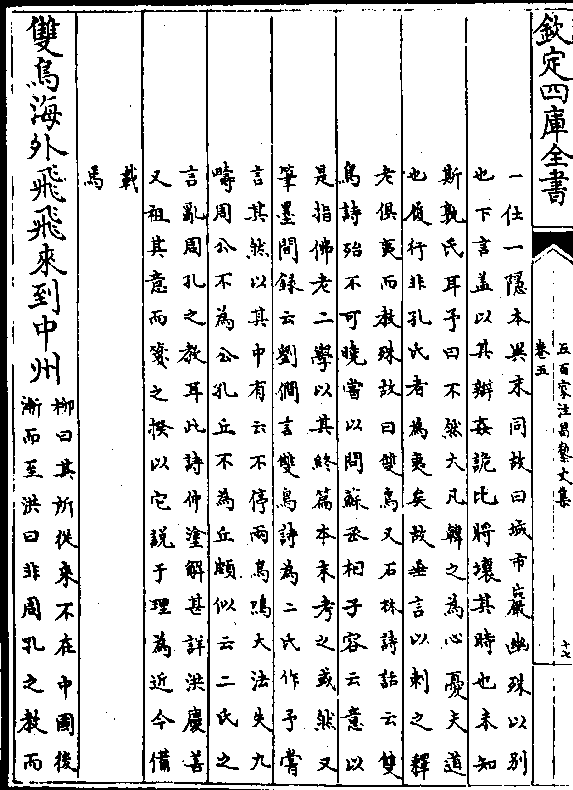 欽定四庫全書
五百家注昌黎文集
卷五
十七
一仕一隱本異末同故曰城市巖幽殊以别
也下言盖以其辨姦詭比將壞其時也未知
斯孰氏耳予曰不然大凡韓之為心憂夫道
也履行非孔氏者為夷矣故垂言以刺之釋
老俱夷而教殊故曰雙鳥又石林詩話云雙
鳥詩殆不可曉嘗以問蘇丞相子容云意以
是指佛老二學以其終篇本末考之或然又
筆墨間錄云劉僩言雙鳥詩為二氏作予嘗
言其然以其中有云不停兩鳥鳴大法失九
疇周公不為公孔丘不為丘頗似云二氏之
言亂周孔之教耳此詩仲塗解甚詳洪慶善
又祖其意而箋之揆以它說于理為近今備
載
焉
雙鳥海外飛飛來到中州
柳曰其所從來不在中國後
漸而至洪曰非周孔之教而